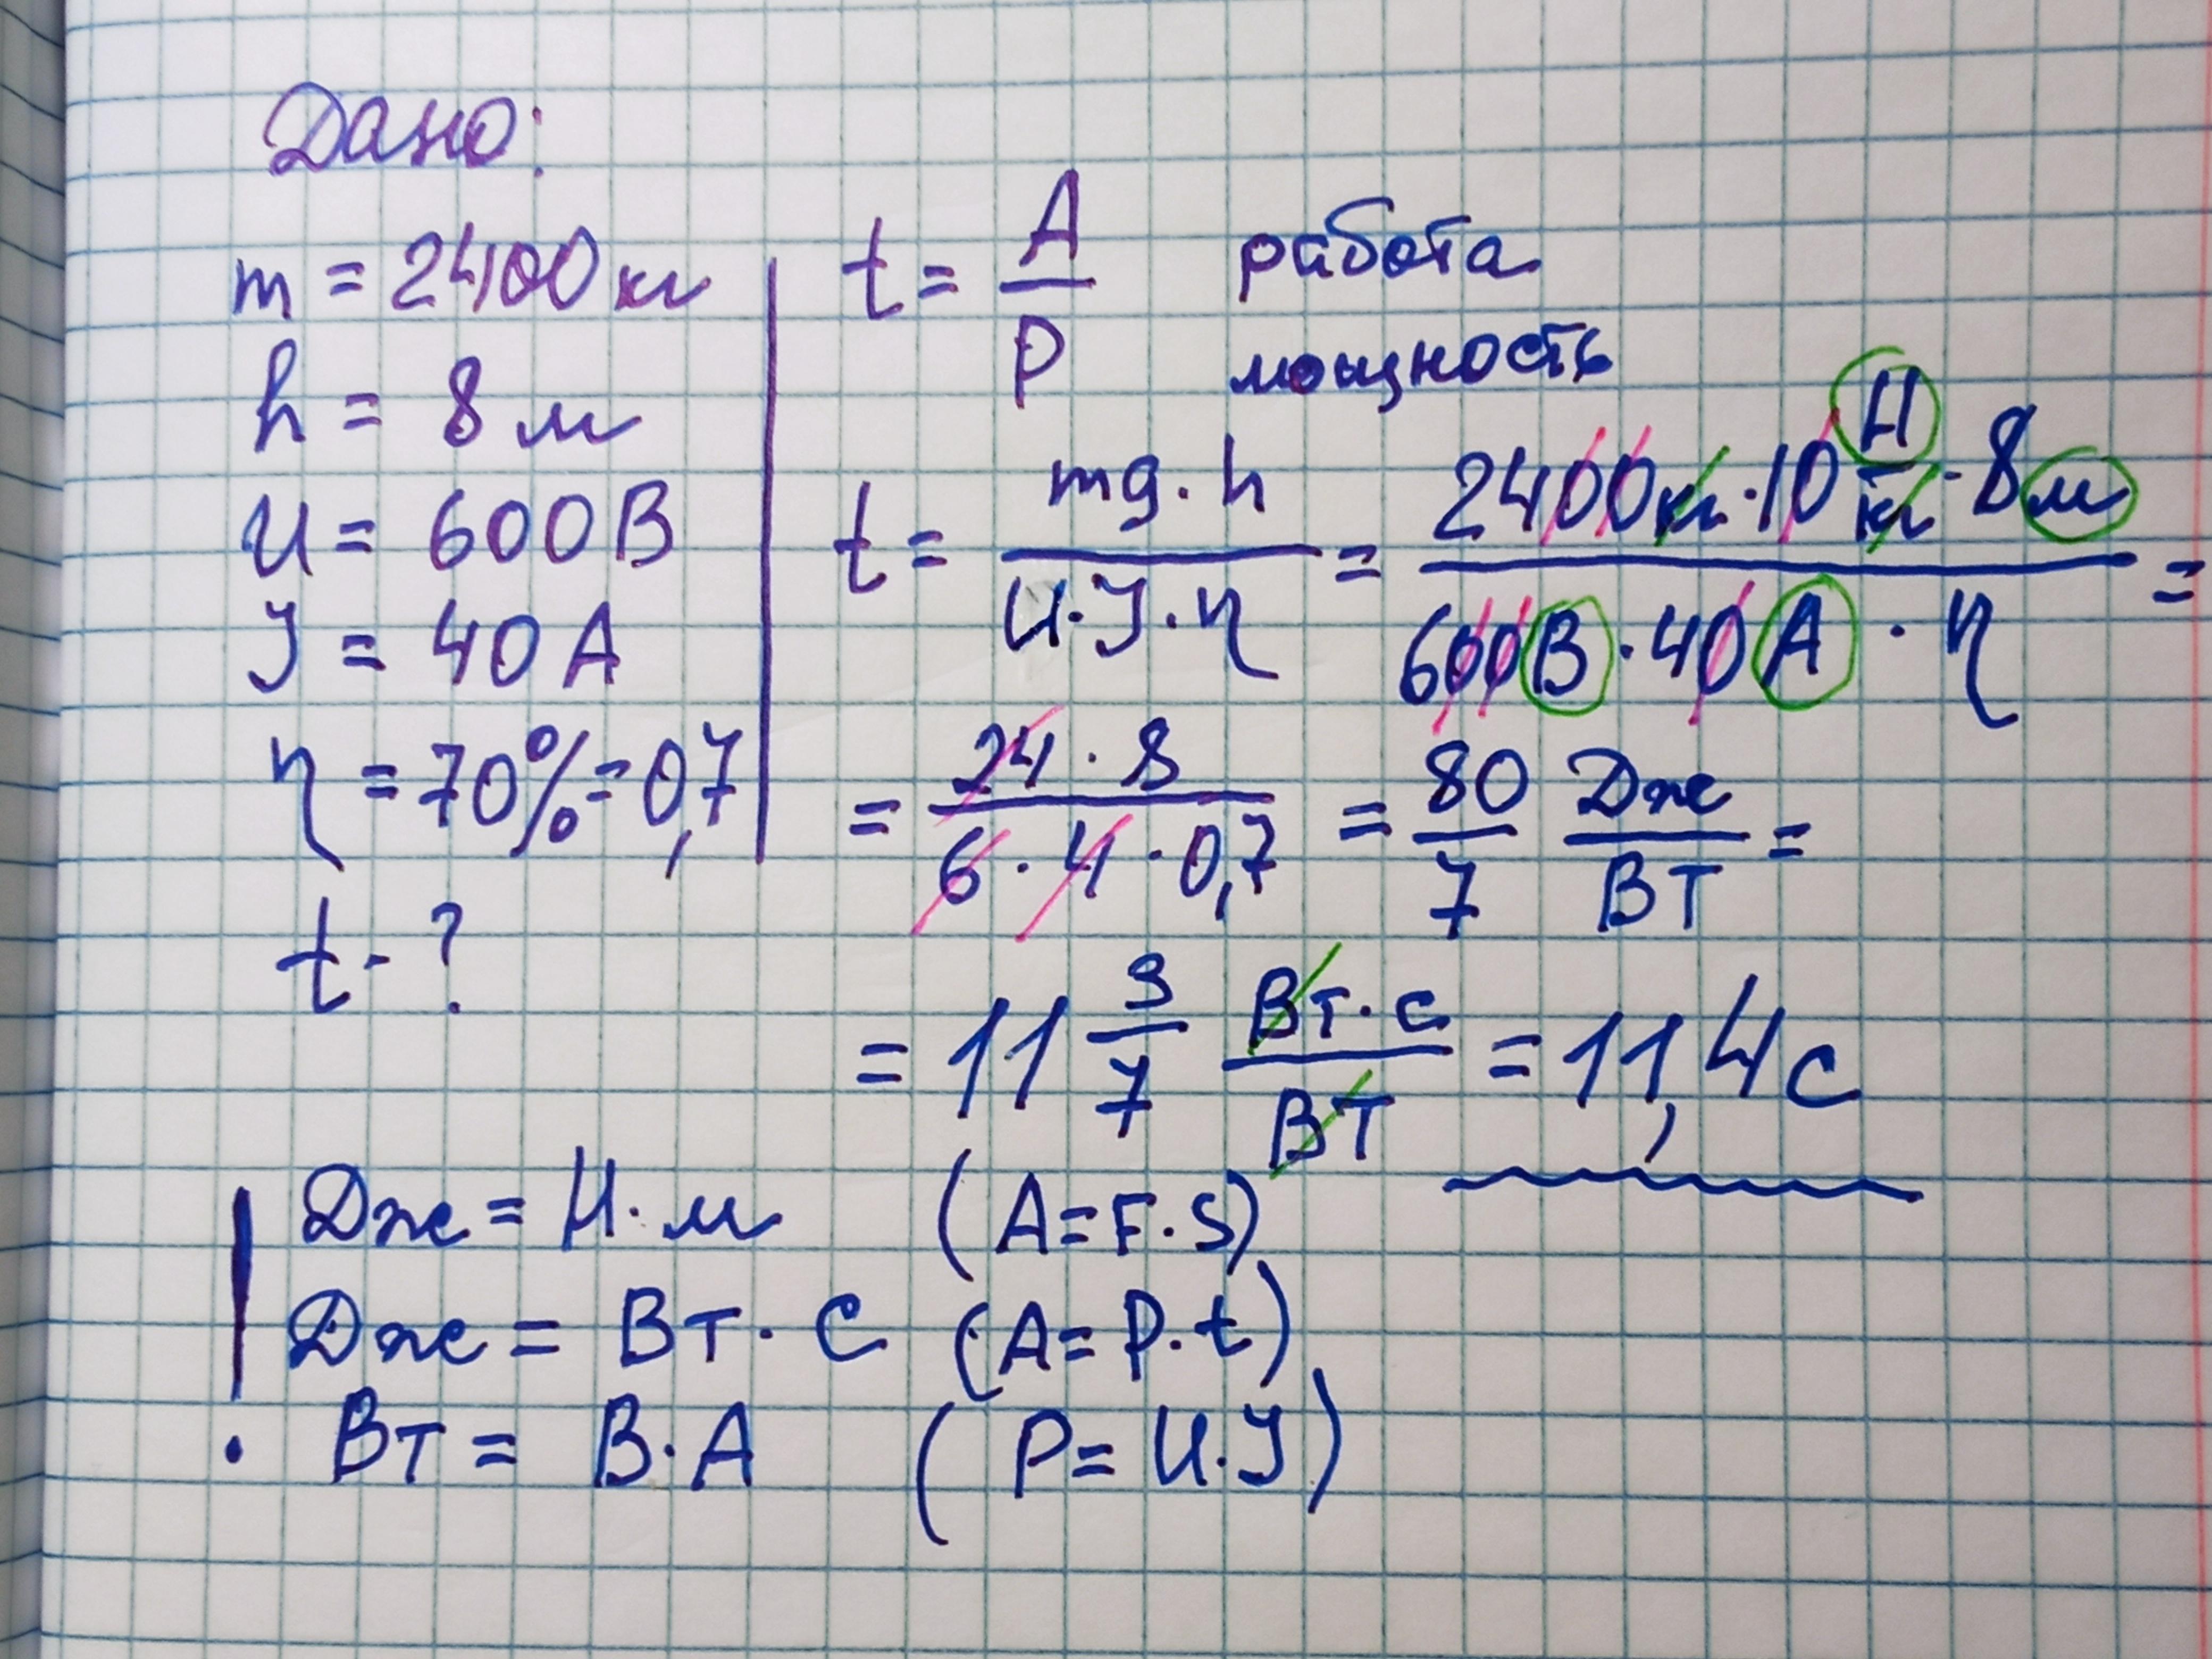 Дано:
m = 2400 кг
h = 8 м
U = 600 В
I = 40 А
η = 70% = 0,7
t - ?
t = A / P работа мощность
t = mg · h / U · I · η = 2400 кг · 10 Н/кг · 8 м / 600 В · 40 А · η =
= 24 · 8 / 6 · 4 · 0,7 = 80/7 Дж/Вт =
= 11 3/7 Вт · с / Вт = 11,4 с
! Дж = Н · м (A = F · S)
Дж = Вт · с (A = P · t)
Вт = В · А (P = U · I)